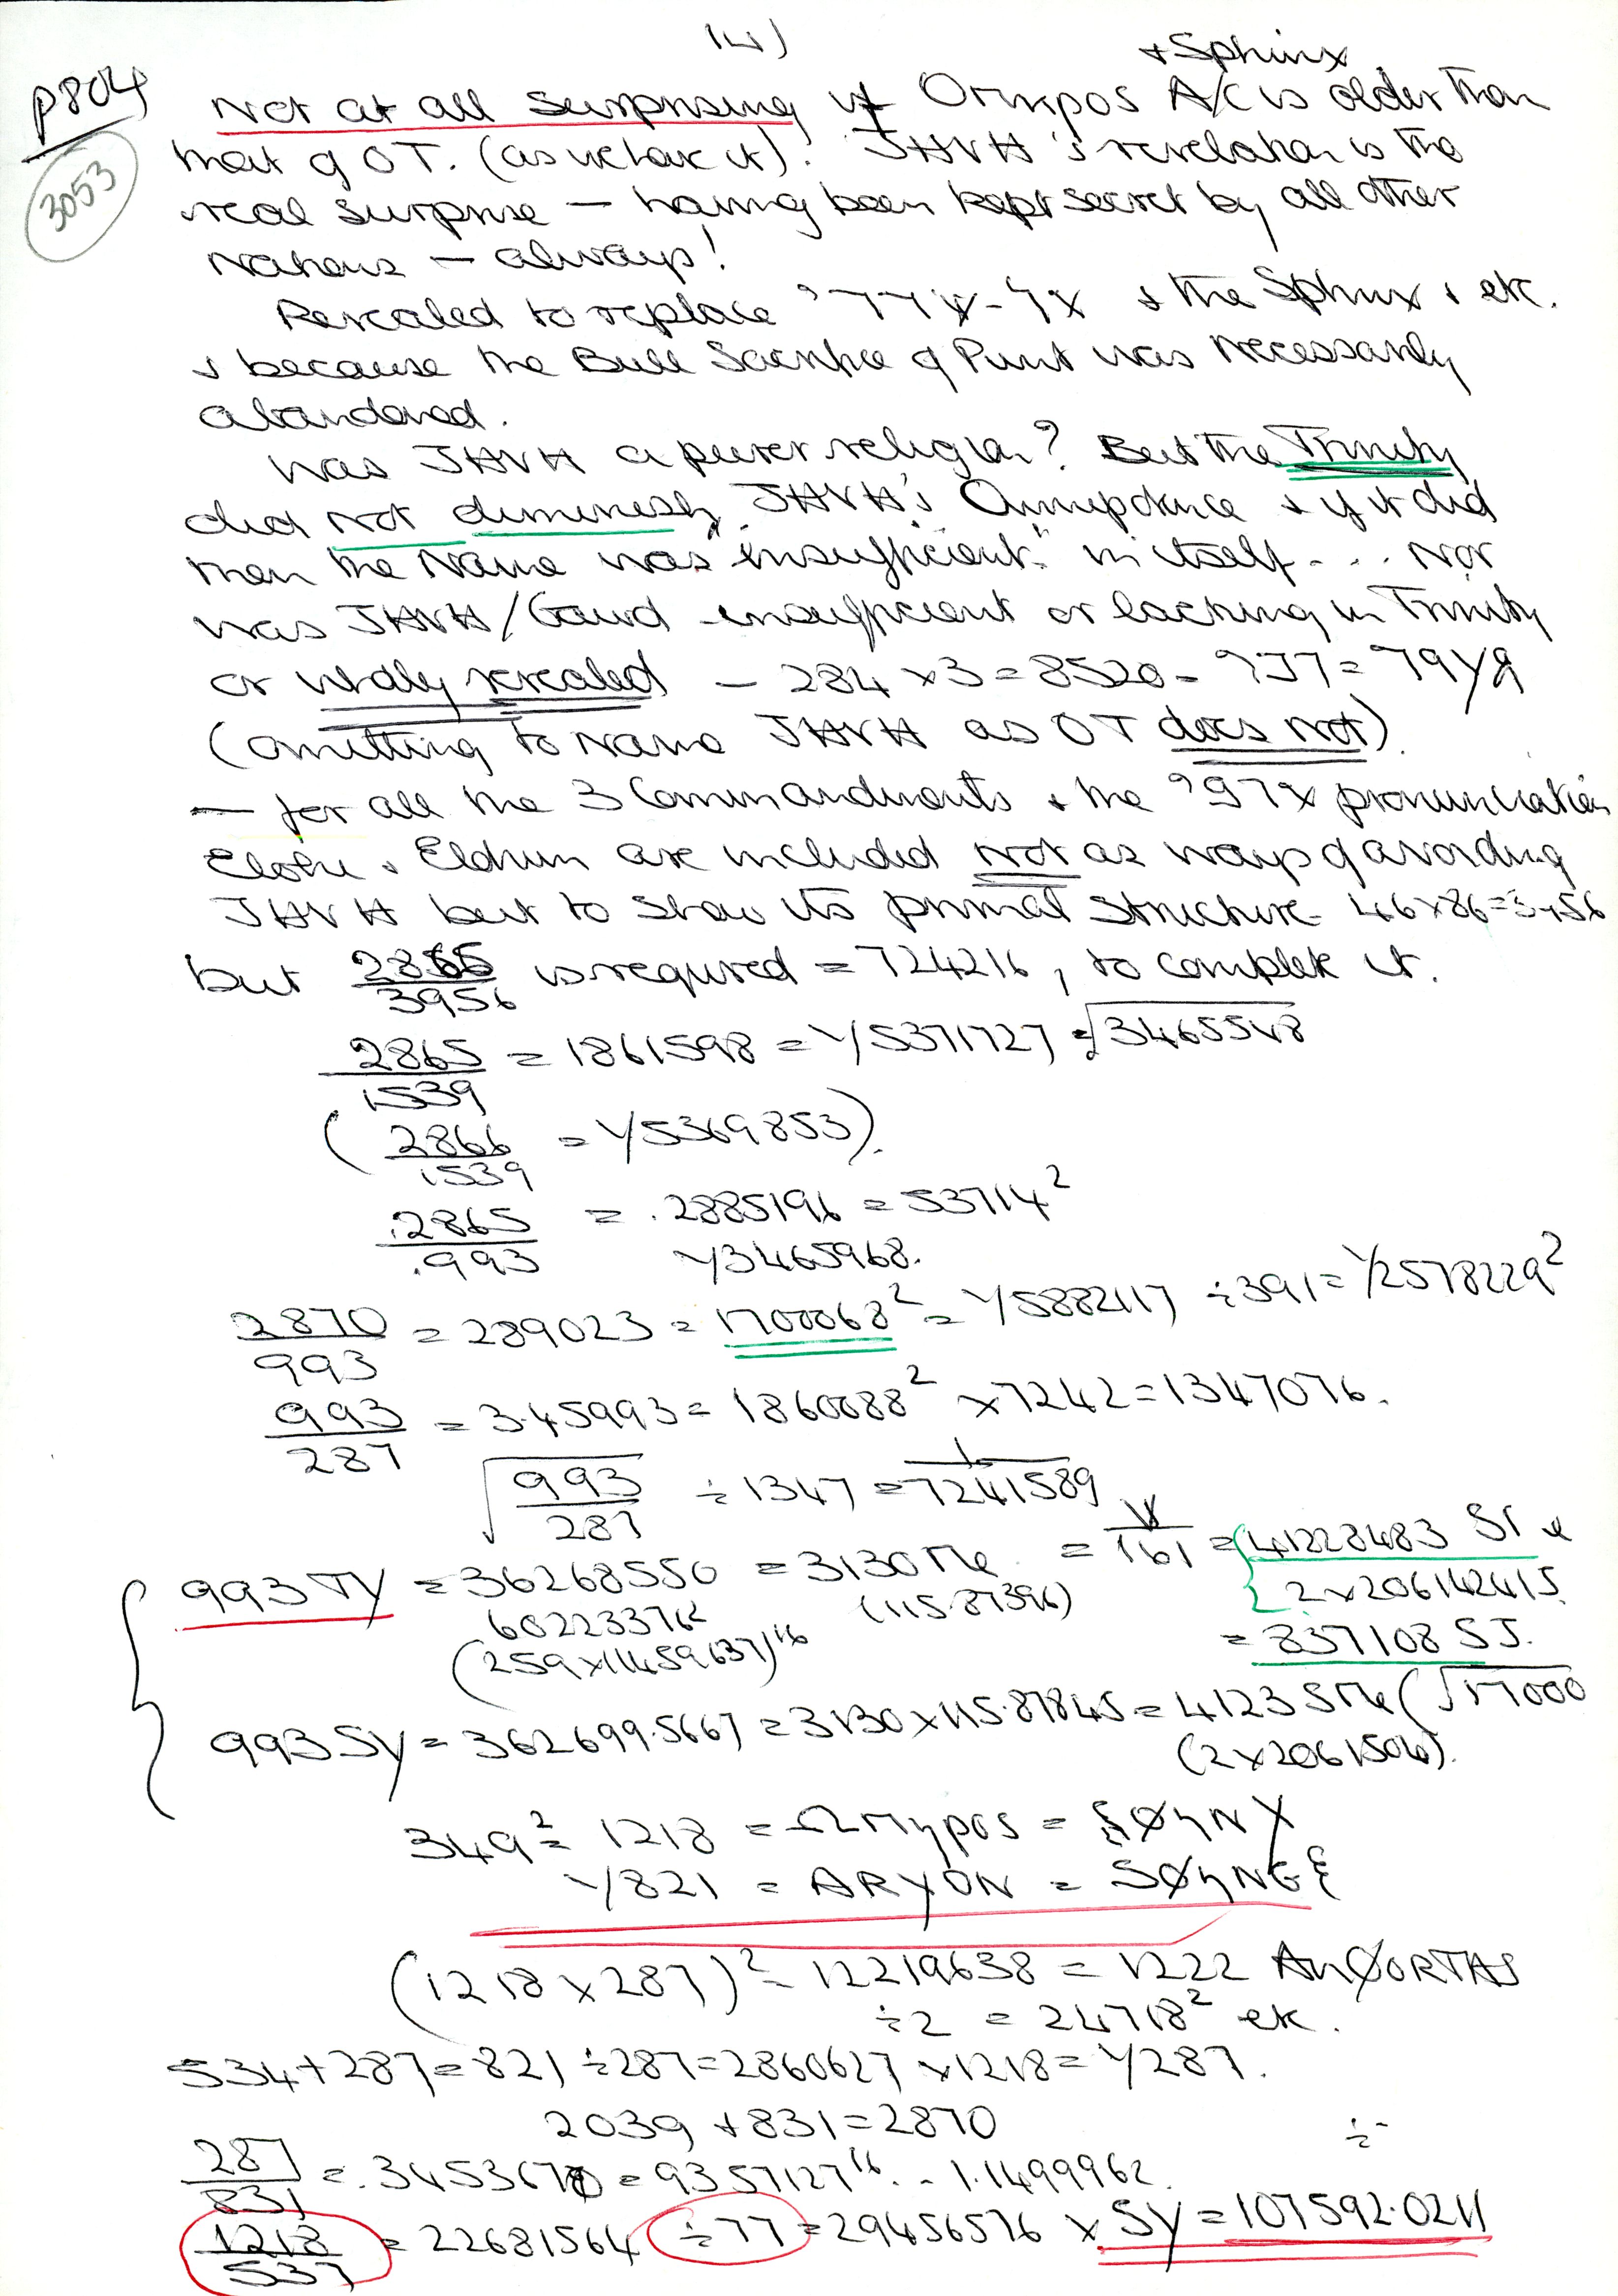 (4)
+ Sphinx
p804
3053
Not at all surprising if Omnpos A/C is older than
that of OT. (as we have it). JHVH's revelation is the
real surprise — having been kept secret by all other
Nations — always!
Revealed to replace & the Sphinx & etc.
& because the Bull Sacrifice of Punt was necessarily
abandoned.
Was JHVH a purer religion? But the Trinity
did not diminish JHVH's Omnipotence & if it did
then the Name was "insufficient" in itself... Nor
was JHVH/Gawd insufficient or lacking in Trinity
or wholly revealed — 284 x 3 = 8520 =
(omitting to Name JHVH as OT does not)
— for all the 3 Commandments & the pronunciation
Elohe & Elohim are included not as ways of avoiding
JHVH but to show its primal structure 46 x 86 = 3956
but 2865/3956 is required = 724216, to complete it.
2865/1539 = 1861598 = Y5371727 = √3465548
(2866/1539 = Y5369853).
.2865/.993 = .2885196 = 53714²
Y3465968.
2870/993 = 289023 = 1700068² = Y5882117 ÷ 391 = Y2578229²
993/287 = 3.45993 = 1860088² x 7242 = 1347076.
√993/287 ÷ 1347 = 1/7241589
993 TY = 36268550 = 3130 = /161 = 41228483
60223376
(115.87396)
2 x 20614241
(259 x 11459637)¹⁶
= 837108 SJ.
993 SY = 362699.5667 = 3130 x 115.87845 = 4123 (√17000
(2 x 2061504).
349² = 1218 = ΩΜηρος =
Y821 = ARYON =
(1218 x 287)² = 12219638 = 1222 AnφORTAS
÷2 = 24718² etc.
534 + 287 = 821 ÷ 287 = 2860627 x 1218 = Y287.
2039 + 831 = 2870
÷
287/831 = .3453670 = 9357127¹⁶ - 1.1499962
1218/537 = 22681564 ÷77 = 29456576 x SY = 107592.0211